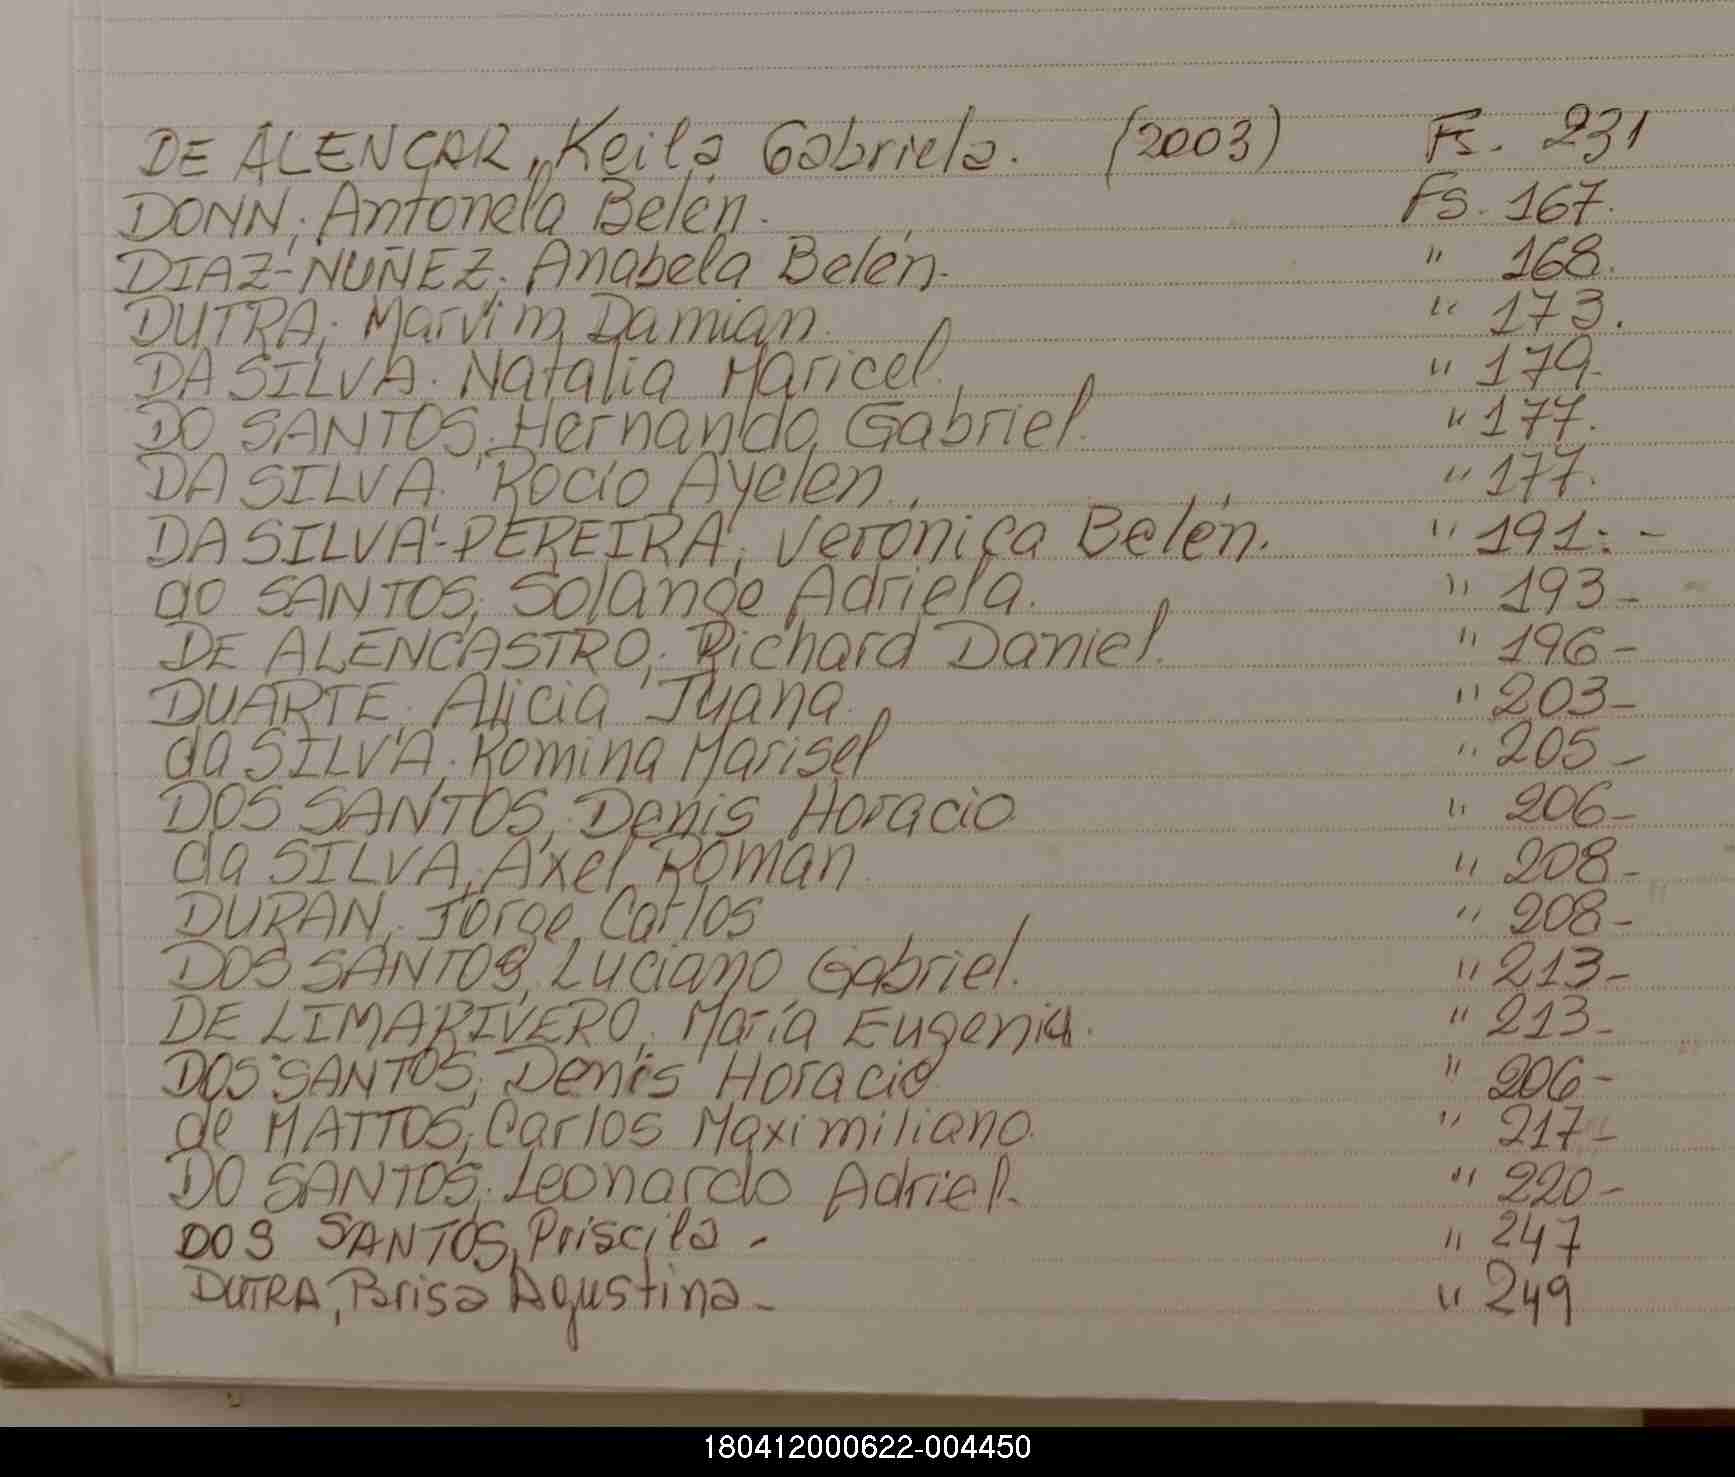 DE ALENCAR, Keila Gabriela. (2003) Fs. 231
DONN; Antonela Belén. Fs. 167.
DIAZ-NUÑEZ; Anabela Belén. " 168.
DUTRA; Marvim Damian. " 173.
DA SILVA. Natalia Maricel. " 179-
DO SANTOS; Hernando Gabriel. " 177.
DA SILVA. Rocio Ayelen. " 177.
DA SILVA-PEREIRA; Verónica Belén. " 191.-
do SANTOS; Solange Adriela. " 193-
DE ALENCASTRO; Richard Daniel. " 196-
DUARTE; Alicia Juana. " 203-
da SILVA; Romina Marisel " 205-
DOS SANTOS; Denis Horacio " 206-
da SILVA; Axel Roman " 208-
DURAN; Jorge Carlos " 208-
DOS SANTOS, Luciano Gabriel. " 213-
DE LIMARIVERO; María Eugenia. " 213-
DOS SANTOS; Denis Horacio " 206-
de MATTOS; Carlos Maximiliano. " 217-
DO SANTOS; Leonardo Adriel. " 220-
DOS SANTOS, Priscila - " 247
DUTRA, Brisa Agustina - " 249
180412000622-004450